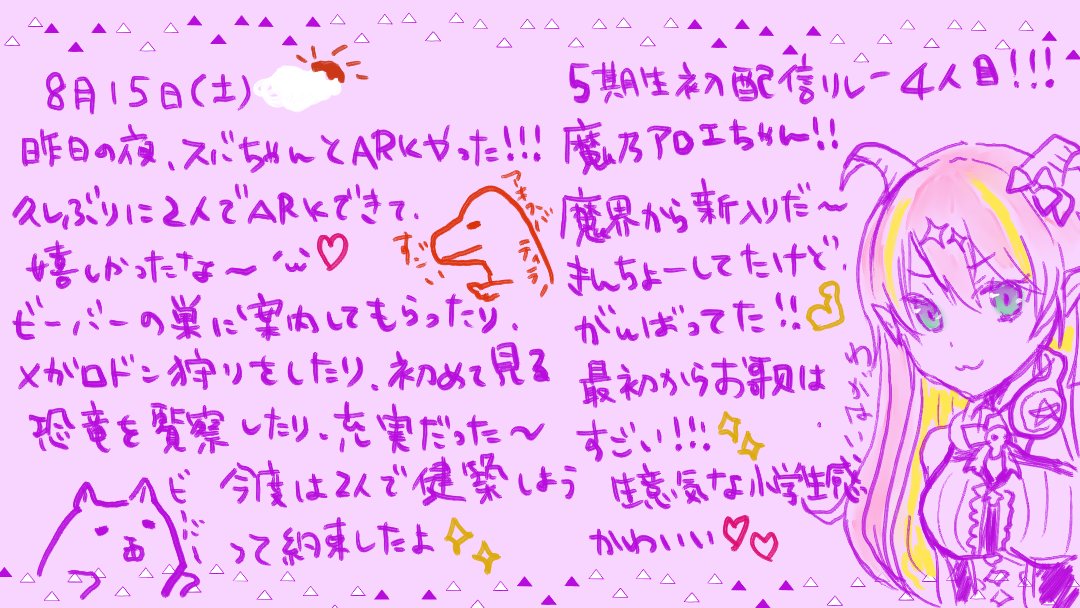 8月15日(土)
昨日の夜、スバちゃんとARKやった!!!
久しぶりに2人でARKできて、
嬉しかったな〜´`♡
ビーバーの巣に案内してもらったり、
メガロドン狩りをしたり、初めて見る
恐竜を観察したり、充実だった〜
今度は2人で建築しよう
って約束したよ
ビーバー
アーキオ
ティラ
5期生初配信リレー4人目!!!
魔乃アロエちゃん!!
魔界から新入りだ〜
きんちょーしてたけど、
がんばってた!!
最初からお歌は
すごい!!!
生意気な小学生感、
かわいい♡♡